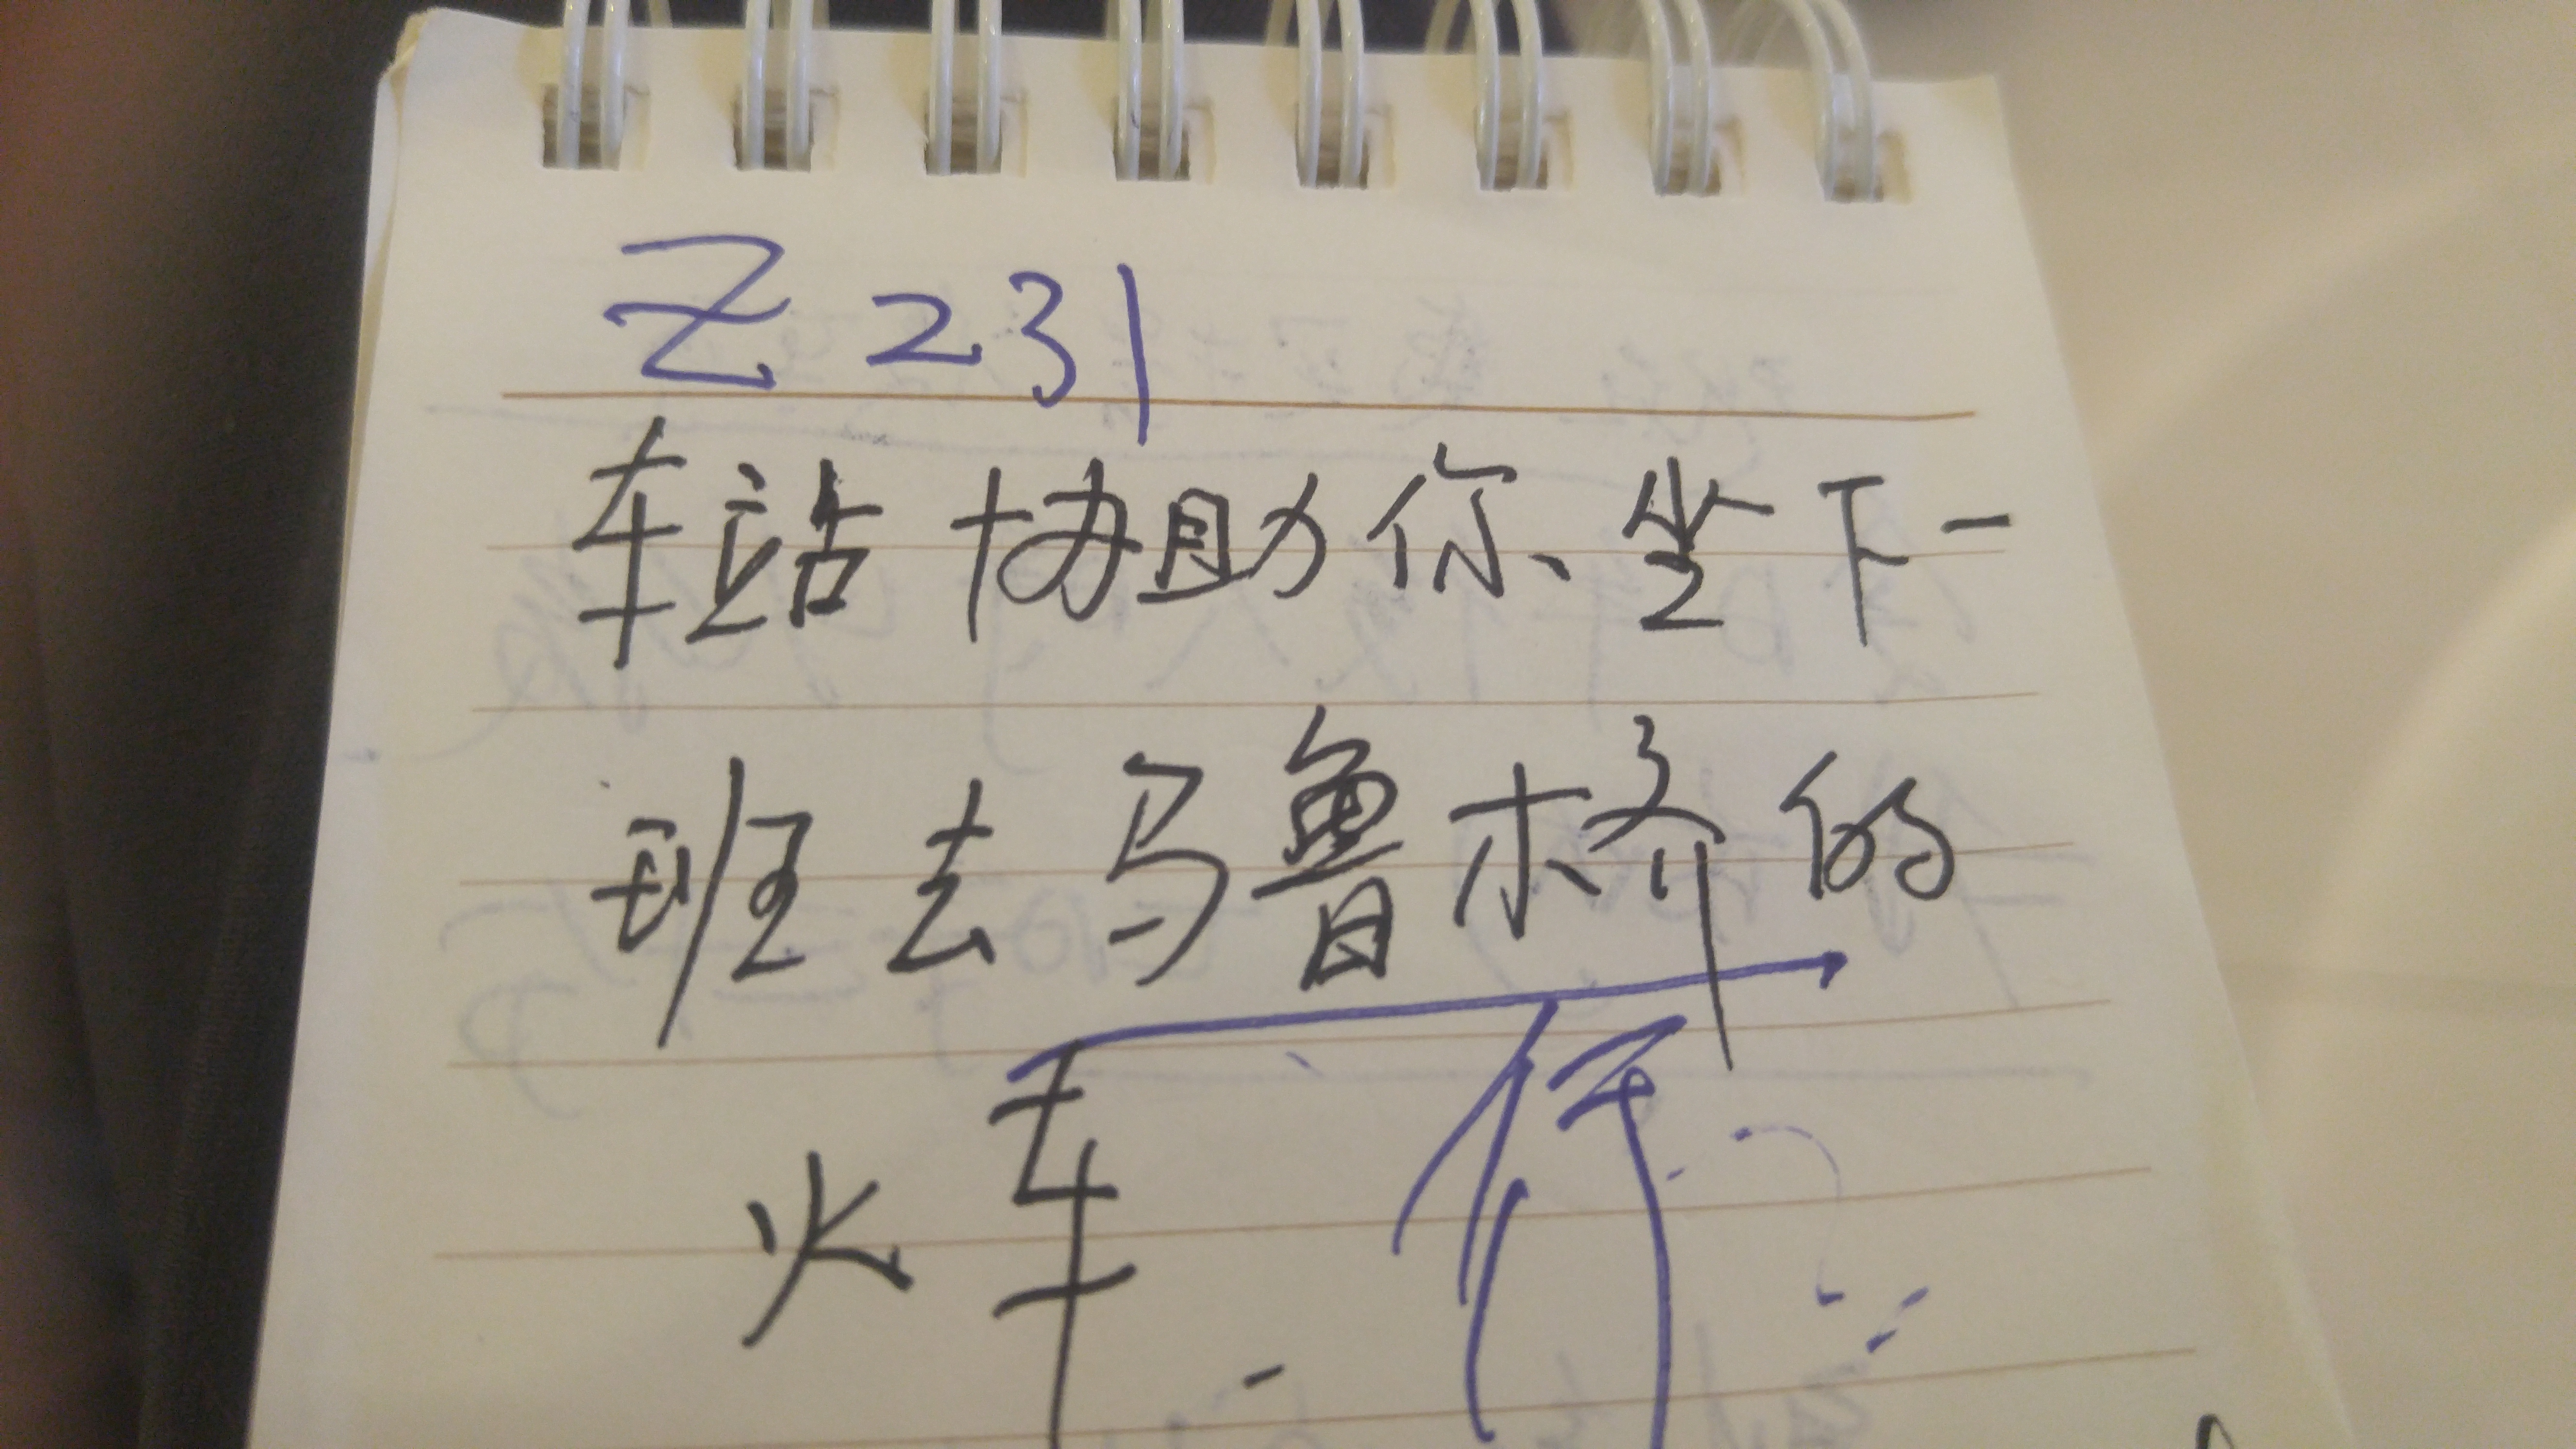 Z231
车站协助你坐下一
班去乌鲁木齐的
火车 行